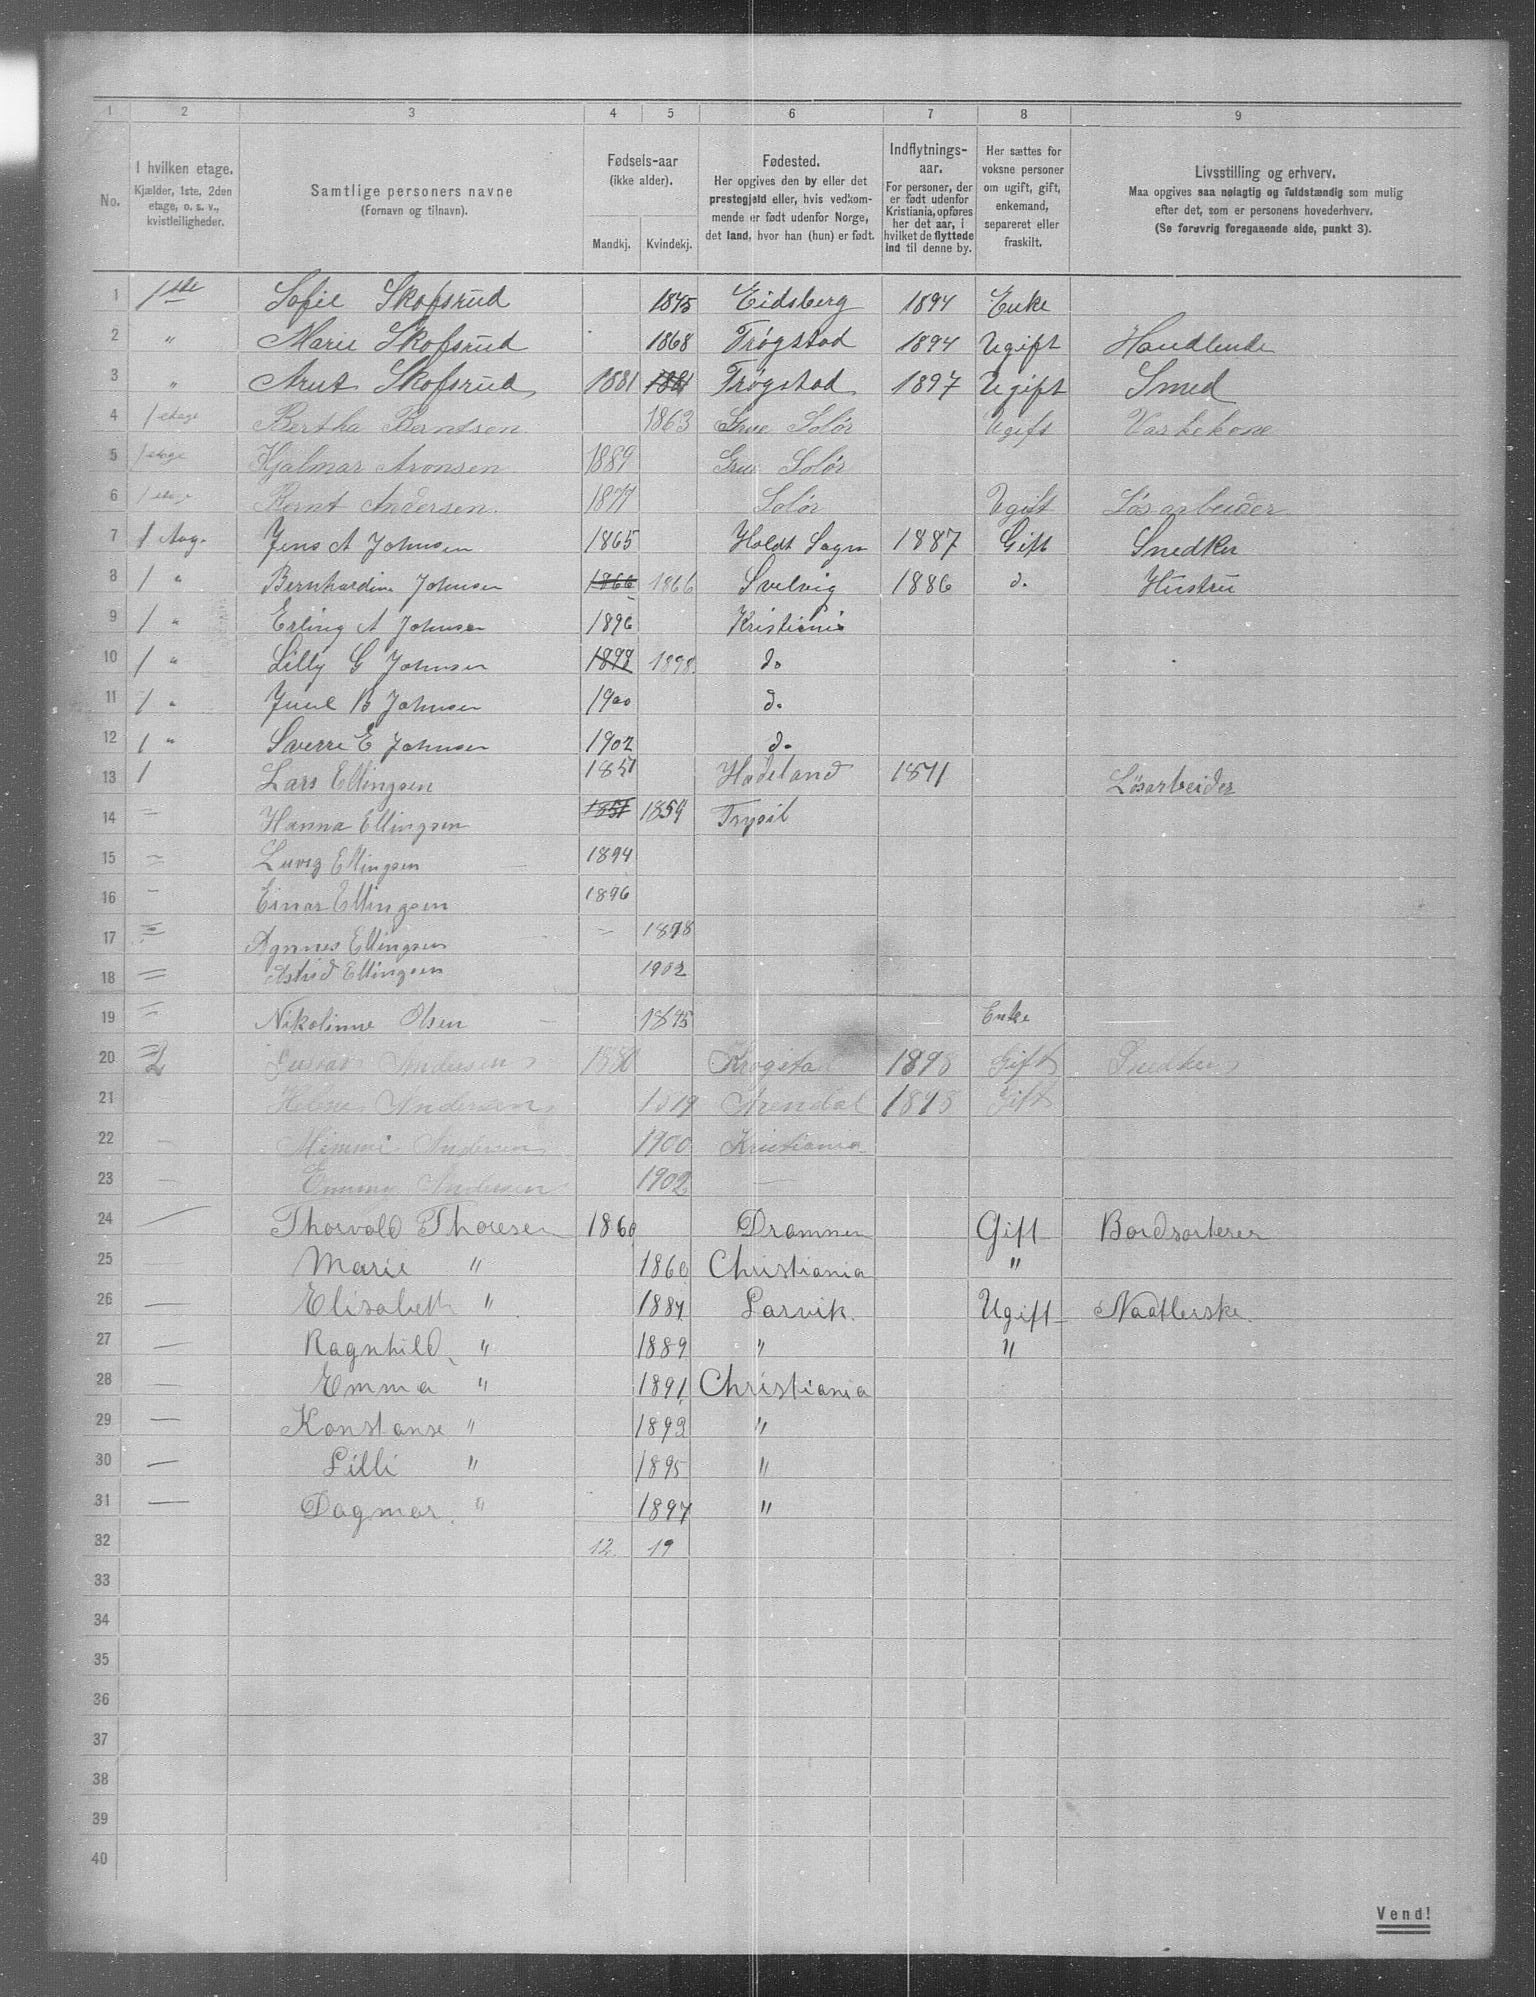 1 2 3 4 5 6 7 8 9
No. | I hvilken etage. Kjælder, 1ste, 2den etage, o. s. v., kvistleiligheder. | Samtlige personers navne (Fornavn og tilnavn). | Fødsels-aar (ikke alder). Mandkj. Kvindekj. | Fødested. Her opgives den by eller det prestegjeld eller, hvis vedkommende er født udenfor Norge, det land, hvor han (hun) er født. | Indflytnings-aar. For personer, der er født udenfor Kristiania, opføres her det aar, i hvilket de flyttede ind til denne by. | Her sættes for voksne personer om ugift, gift, enkemand, separeret eller fraskilt. | Livsstilling og erhverv. Maa opgives saa nøiagtig og fuldstændig som mulig efter det, som er personens hovederhverv. (Se forøvrig foregaaende side, punkt 3).
1 1ste Sofie Skofsrud 1845 Eidsberg 1894 Enke
2 " Marie Skofsrud 1868 Trøgstad 1894 Ugift Handlende
3 " Arnt Skofsrud 1881 1881 Trøgstad 1897 Ugift Smed
4 1 etage Bertha Berntsen 1863 Grue Solør Ugift Vaskekone
5 1 etage Hjalmar Aronsen 1889 Grue Solør
6 1 etage Bernt Andersen 1877 Solør Ugift Løsarbeider
7 1 Jens A Johnsen 1865 Holdt Sogn 1887 Gift Snedker
8 1 " Bernhardine Johnsen 1866 1866 Svelvig 1886 do Hustru
9 1 " Erling A Johnsen 1896 Kristiania
10 1 " Lilly G Johnsen 1898 1898 do
11 1 " Juul B Johnsen 1900 do
12 1 " Sverre E Johnsen 1902 do
13 1 Lars Ellingsen 1851 Hadeland 1871 Løsarbeider
14 — Hanna Ellingsen 1851 1859 Trysil
15 — Luvig Ellingsen 1894
16 — Einar Ellingsen 1896
17 — Agnnes Ellingsen 1898
18 — Astrid Ellingsen 1902
19 — Nikolinne Olsen 1845 Enke
20 2 Gustav Andersen 1880 Krogstad 1898 Gift Snedker
21 Andersen Arendal 1898 Gift
22 — Mimmi Andersen 1900 Kristiania
23 — Emmy Andersen 1902 —
24 — Thorvald Thoresen 1860 Drammen Gift Bordsorterer
25 — Marie " 1860 Christiania "
26 — Elisabeth " 1887 Larvik Ugift Naatlerske
27 — Ragnhild " 1889 " "
28 — Emma " 1891 Christiania
29 — Konstanse " 1893 "
30 — Lilli " 1895 "
31 — Dagmar " 1897 "
32 12 19
33
34
35
36
37
38
39
40
Vend!